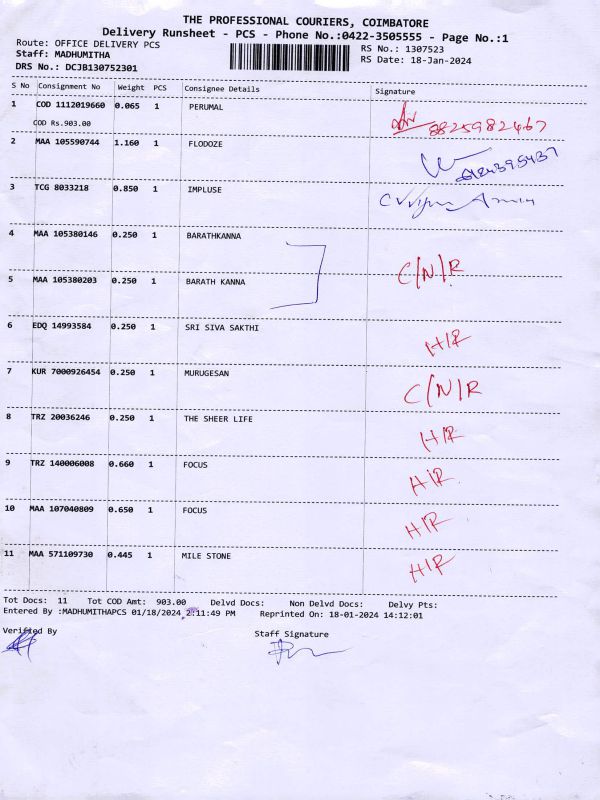 THE PROFESSIONAL COURIERS, COIMBATORE
Delivery Runsheet - PCS - Phone No.:0422-3505555 - Page No.:1
Route: OFFICE DELIVERY PCS RS No.: 1307523
Staff: MADHUMITHA RS Date: 18-Jan-2024
DRS No.: DCJB130752301
S No Consignment No Weight PCS Consignee Details Signature
1 COD 1112019660 0.065 1 PERUMAL 8825982467
COD Rs.903.00
2 MAA 105590744 1.160 1 FLODOZE
3 TCG 8033218 0.850 1 IMPLUSE
4 MAA 105380146 0.250 1 BARATHKANNA
C/N/R
5 MAA 105380203 0.250 1 BARATH KANNA
6 EDQ 14993584 0.250 1 SRI SIVA SAKTHI H/R
7 KUR 7000926454 0.250 1 MURUGESAN C/N/R
8 TRZ 20036246 0.250 1 THE SHEER LIFE H/R
9 TRZ 140006008 0.660 1 FOCUS H/R
10 MAA 107040809 0.650 1 FOCUS H/R
11 MAA 571109730 0.445 1 MILE STONE H/R
Tot Docs: 11 Tot COD Amt: 903.00 Delvd Docs: Non Delvd Docs: Delvy Pts:
Entered By :MADHUMITHAPCS 01/18/2024 2:11:49 PM Reprinted On: 18-01-2024 14:12:01
Verified By Staff Signature